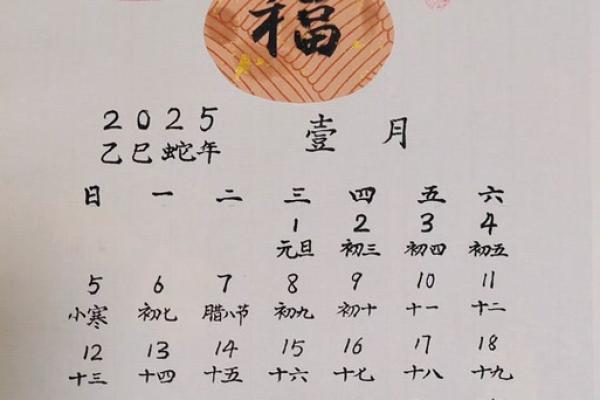 福
2025 壹月
乙巳蛇年
日 一 二 三 四 五 六
1 2 3 4
元旦 初三 初四 初五
5 6 7 8 9 10 11
小寒 初七 腊八节 初九 初十 十一 十二
12 13 14 15 16 17 18
十三 十四 十五 十六 十七 十八 十九